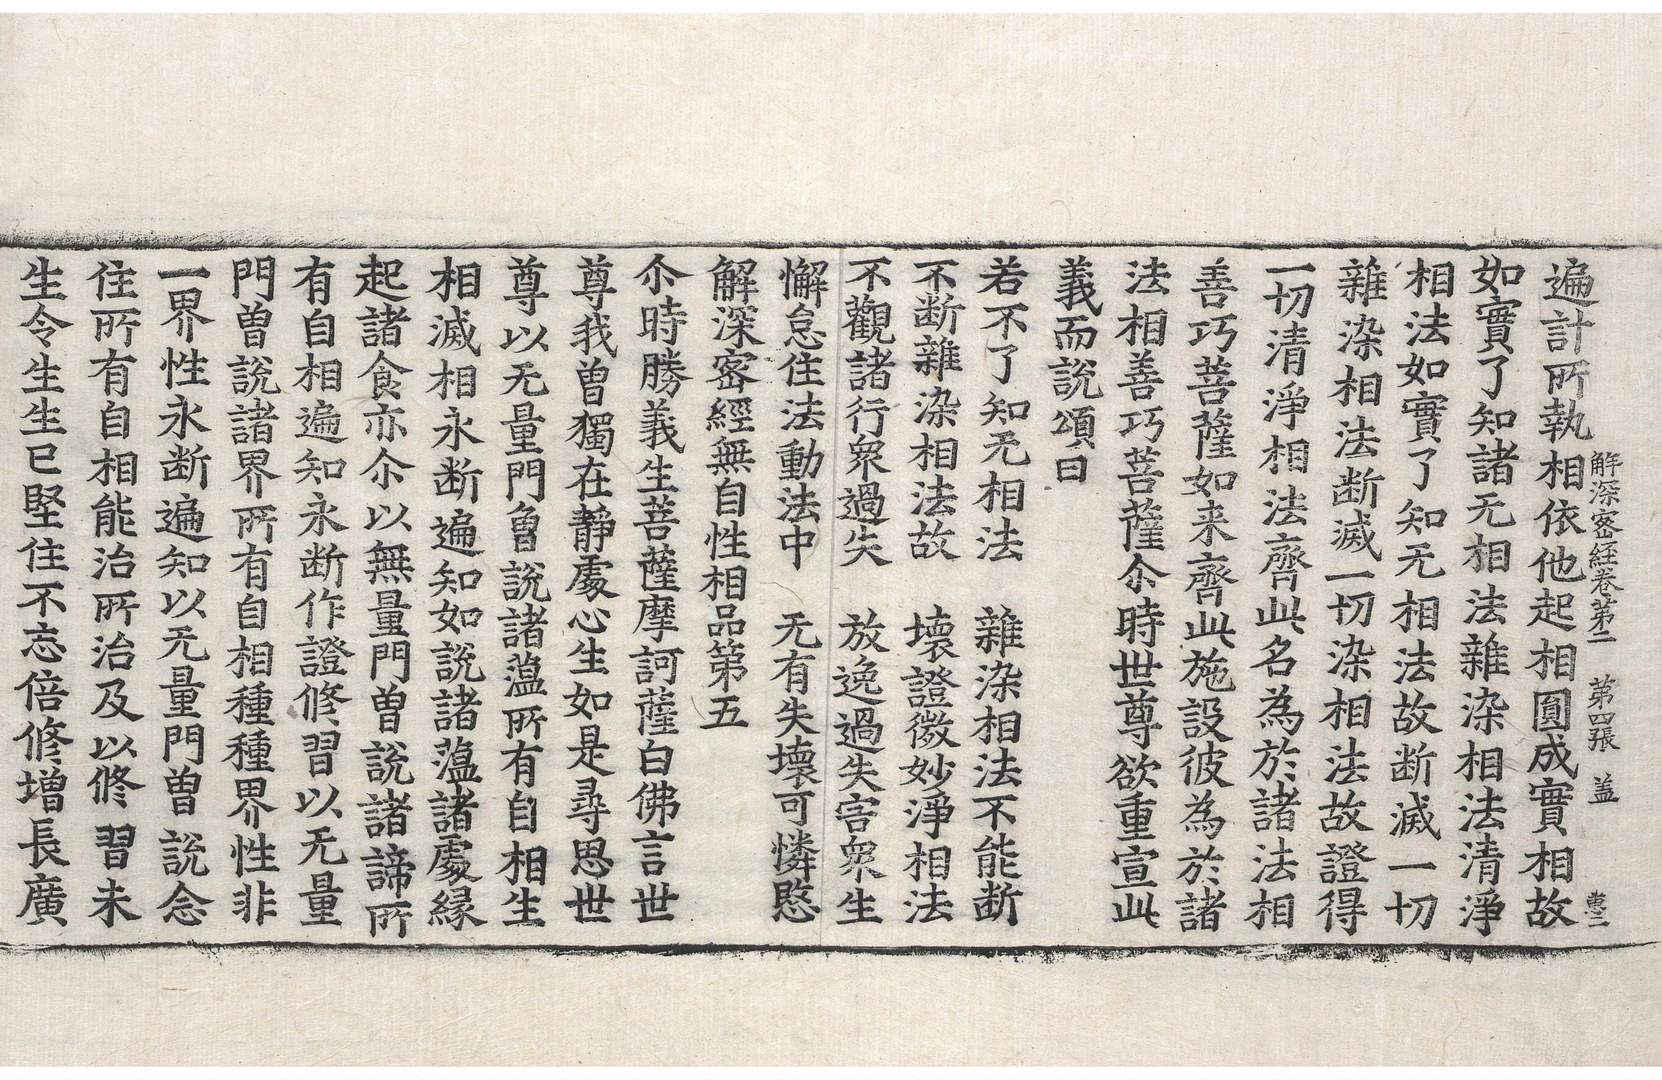 解深密經卷第二　第四張　盖
遍計所執相依他起相圓成實相故
如實了知諸无相法雜染相法清淨
相法如實了知无相法故断滅一切
雜染相法断滅一切染相法故證得
一切清淨相法齊此名為於諸法相
善巧菩薩如来齊此施設彼為於諸
法相善巧菩薩尒時世尊欲重宣此
義而說頌曰
若不了知无相法　雜染相法不能断
不断雜染相法故　壊證微妙淨相法
不觀諸行衆過失　放逸過失害衆生
懈怠住法動法中　无有失壊可憐愍
解深密經無自性相品第五
尒時勝義生菩薩摩訶薩白佛言世
尊我曽獨在靜處心生如是尋思世
尊以无量門曽說諸薀所有自相生
相滅相永断遍知如說諸薀諸處縁
起諸食亦尒以無量門曽說諸諦所
有自相遍知永断作證修習以无量
門曽說諸界所有自相種種界性非
一界性永断遍知以无量門曽說念
住所有自相能治所治及以修習未
生令生生已堅住不忘倍修增長廣